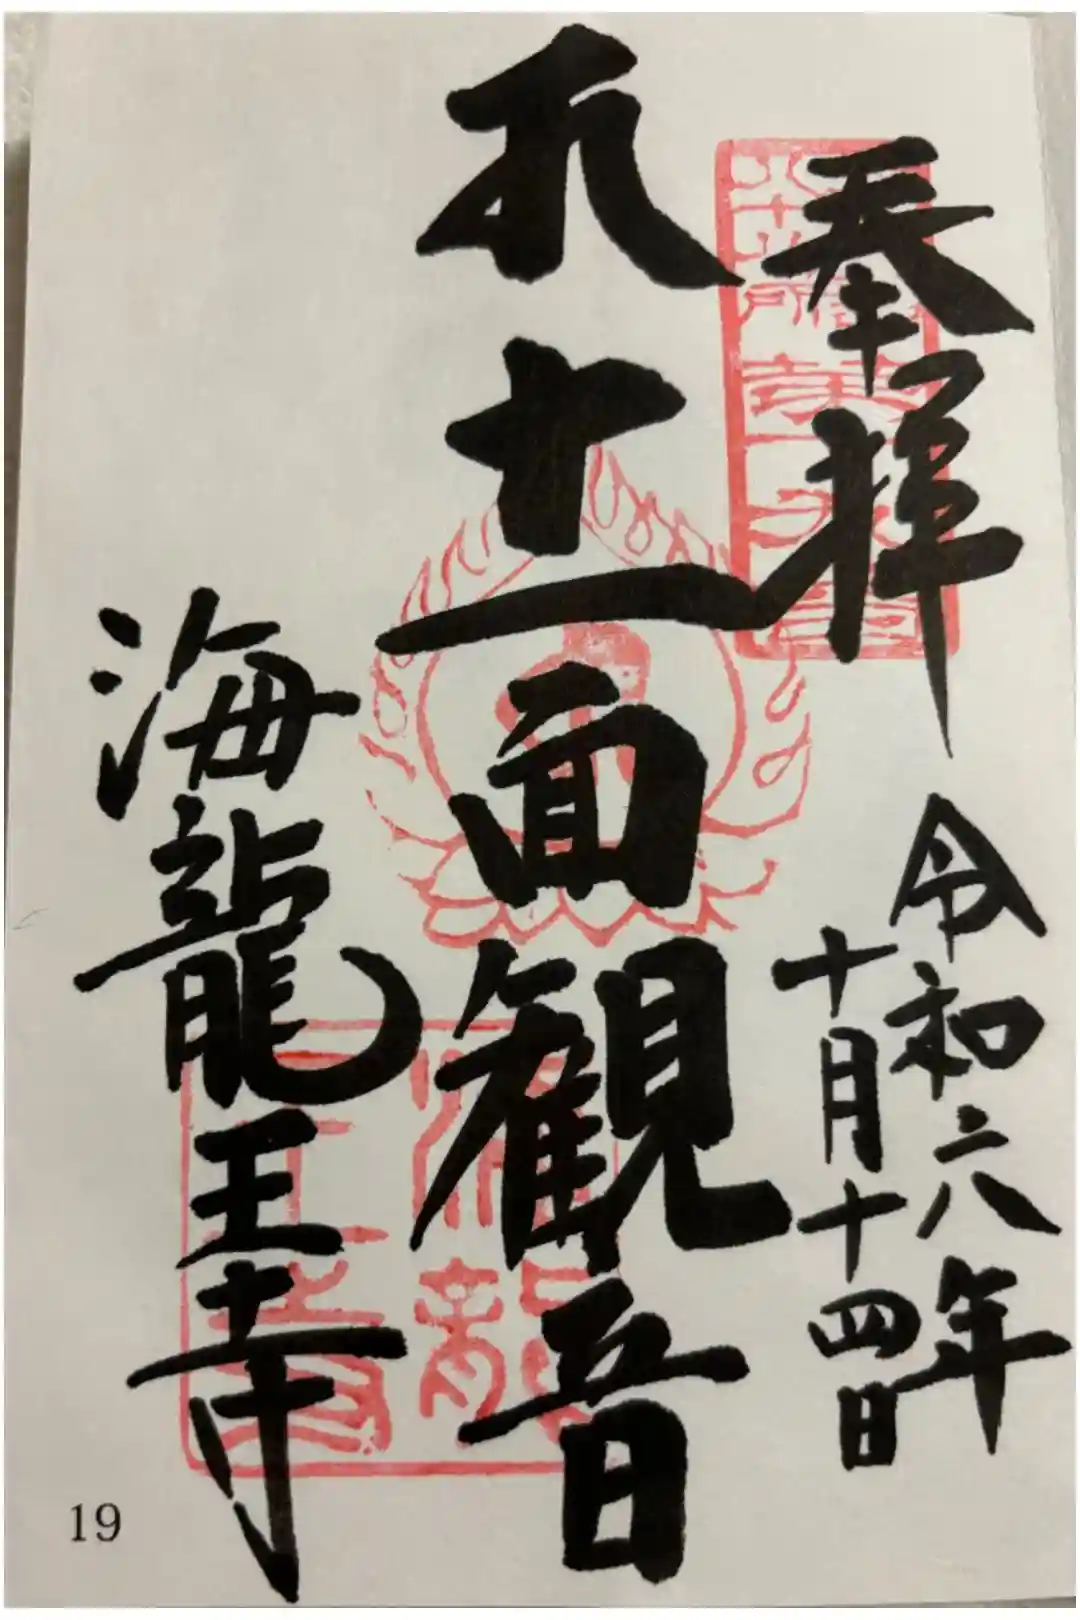 奉拝
令和六年
十月十四日
十一面観音
海龍王寺
海龍
王寺
19